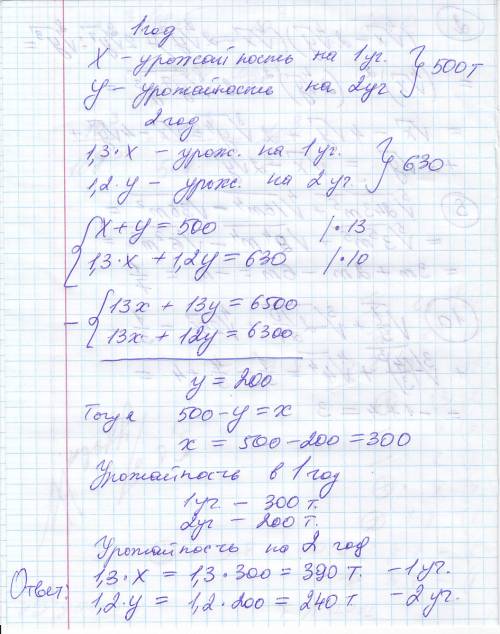 1 год
X – урожайность на 1 уг. } 500 т
y – урожайность на 2 уг
2 год
1,3·x – урож. на 1 уг. } 630
1,2·y – урож. на 2 уг.
{ x + y = 500 /·13
1,3·x + 1,2y = 630 /·10
– { 13x + 13y = 6500
13x + 12y = 6300
y = 200
Тогда 500 – y = x
x = 500 – 200 = 300
Урожайность в 1 год
1 уг – 300 т.
2 уг – 200 т.
Урожайность на 2 год
Ответ: 1,3·x = 1,3·300 = 390 т. – 1 уг.
1,2·y = 1,2·200 = 240 т. – 2 уг.